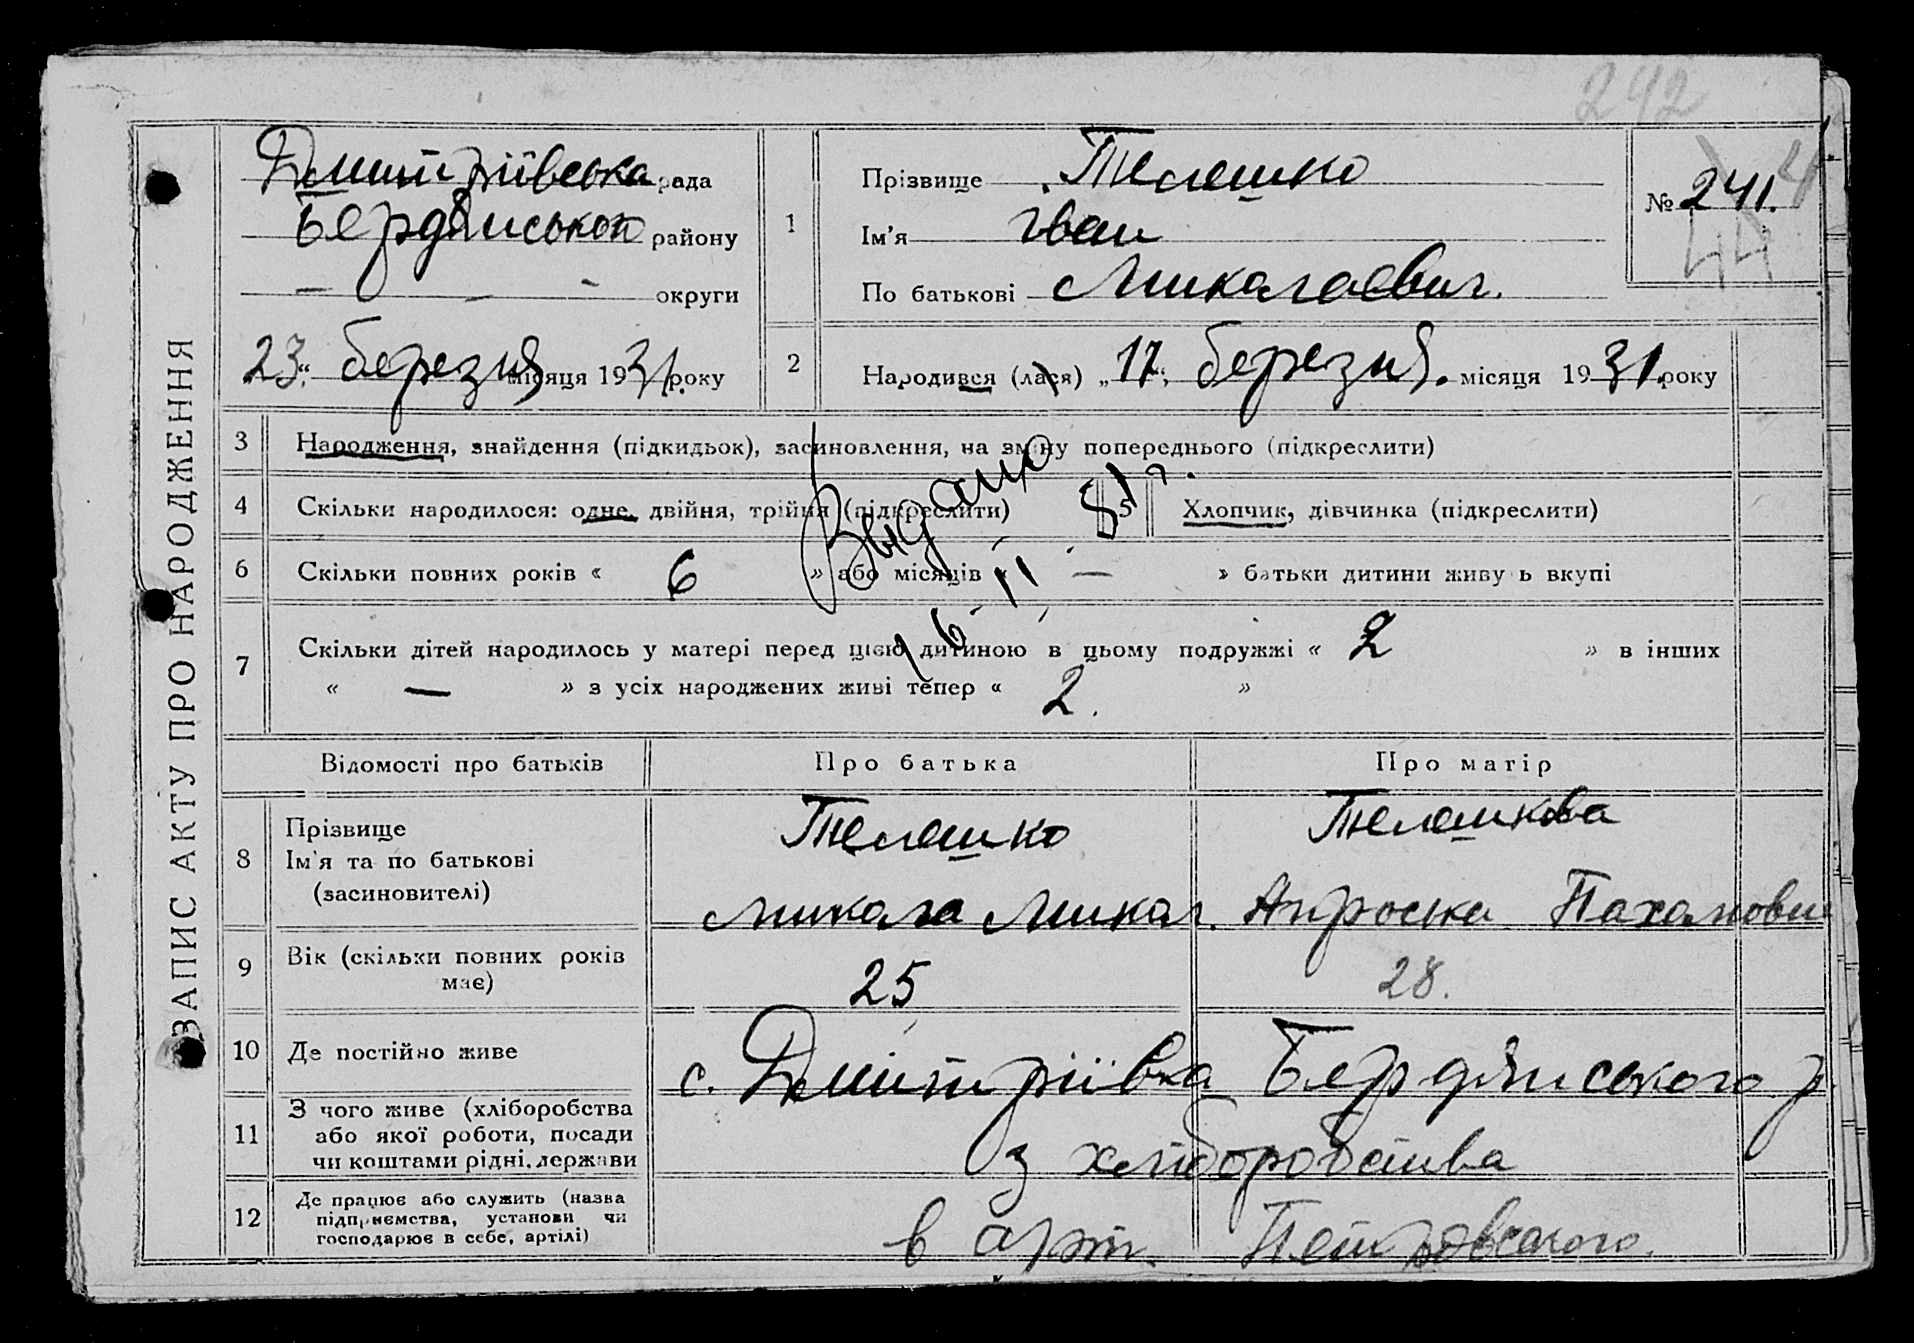 242
Дмитріївська рада
Бердянського району
— — - округи
23 " березня місяця 1931 року
1
Прізвище Телешко
Ім'я Іван
По батькові Миколаєвич.
№ 241.
44
2
Народився (лася) „ 17 " березня. місяця 1931. року
ЗАПИС АКТУ ПРО НАРОДЖЕННЯ
3 Народження, знайдення (підкидьок), засиновлення, на зміну попереднього (підкреслити)
4 Скільки народилося: одне, двійня, трійня (підкреслити)
5 Хлопчик, дівчинка (підкреслити)
6 Скільки повних років « 6 » або місяців « — » батьки дитини живуть вкупі
Выдано
16-II-51 г.
7 Скільки дітей народилось у матері перед цією дитиною в цьому подружжі « 2 » в інших
« — » з усіх народжених живі тепер « 2. »
Відомості про батьків Про батька Про матір
8 Прізвище
Ім'я та по батькові
(засиновителі)
Телешко
Микола Микол.
Телешкова
Апроська
9 Вік (скільки повних років має)
25
28.
10 Де постійно живе
с. Дмітріївка Бердянського р
11 З чого живе (хліборобства
або якої роботи, посади
чи коштами рідні, держави
з хліборобства
12 Де працює або служить (назва
підприємства, установи чи
господарює в себе, артілі)
в арт. Петровського.